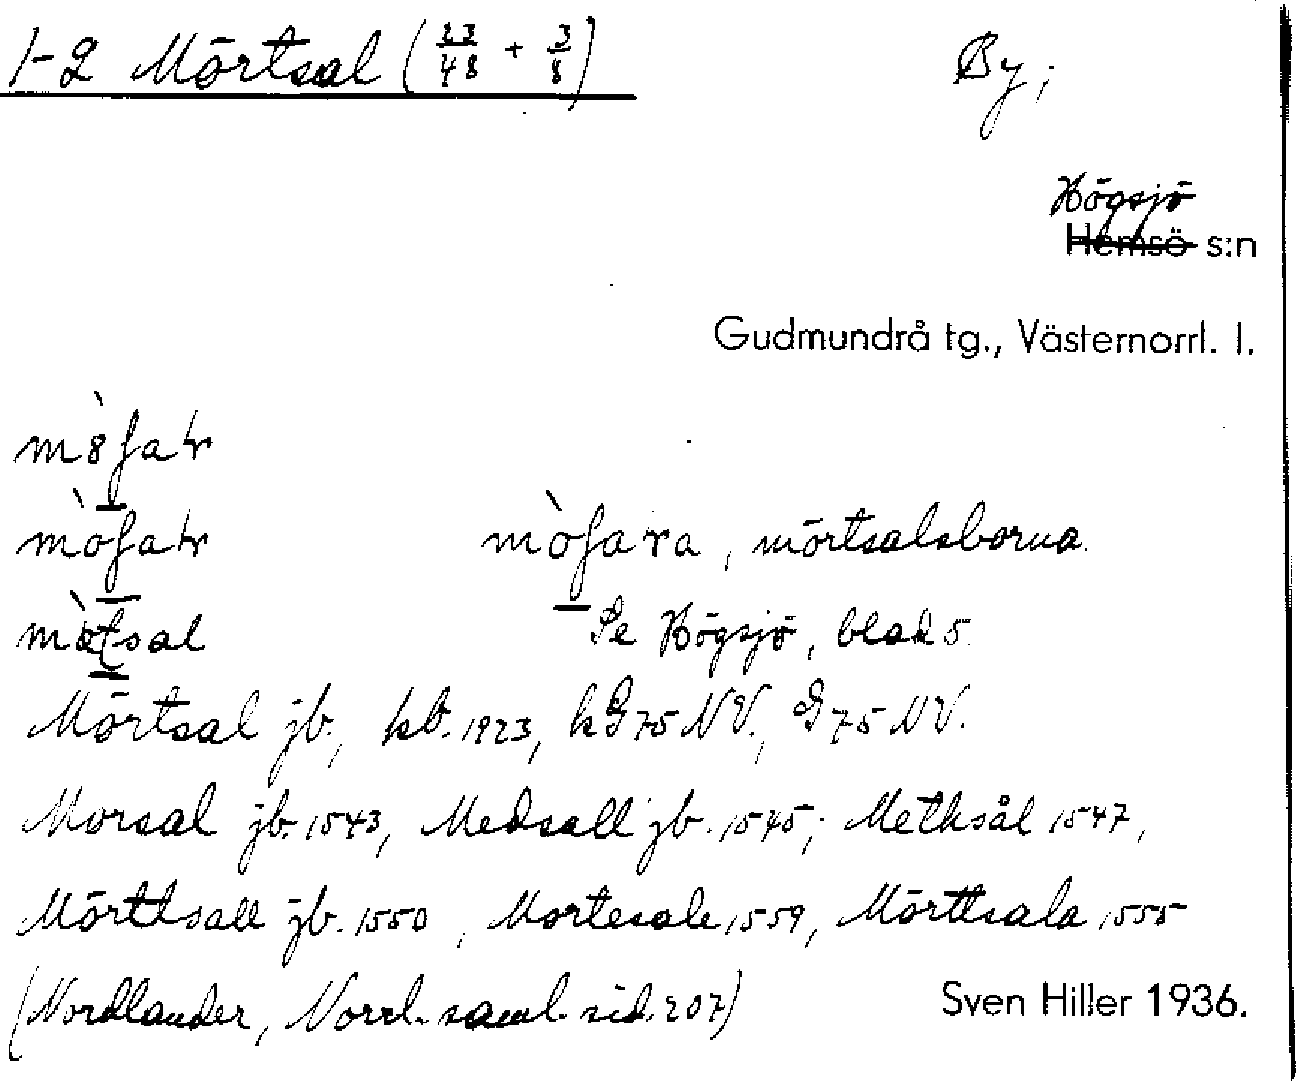 1-2 Mörtsal (23/48 + 3/8) By;
Högsjö
Hemsö s:n
Gudmundrå tg., Västernorrl. l.
mòʃar, mörtsalsborna.
mòtsal Se Högsjö, blad 5.
Mörtsal jb., kb. 1923, hG 75 NV., G 75 NV.
Morsal jb. 1543, Medsall jb. 1545; Methsål 1547,
Mörttsall jb. 1550, Mortesale 1559, Mörttsala 1555
(Nordlander, Norrl. saml. sid. 207) Sven Hiller 1936.